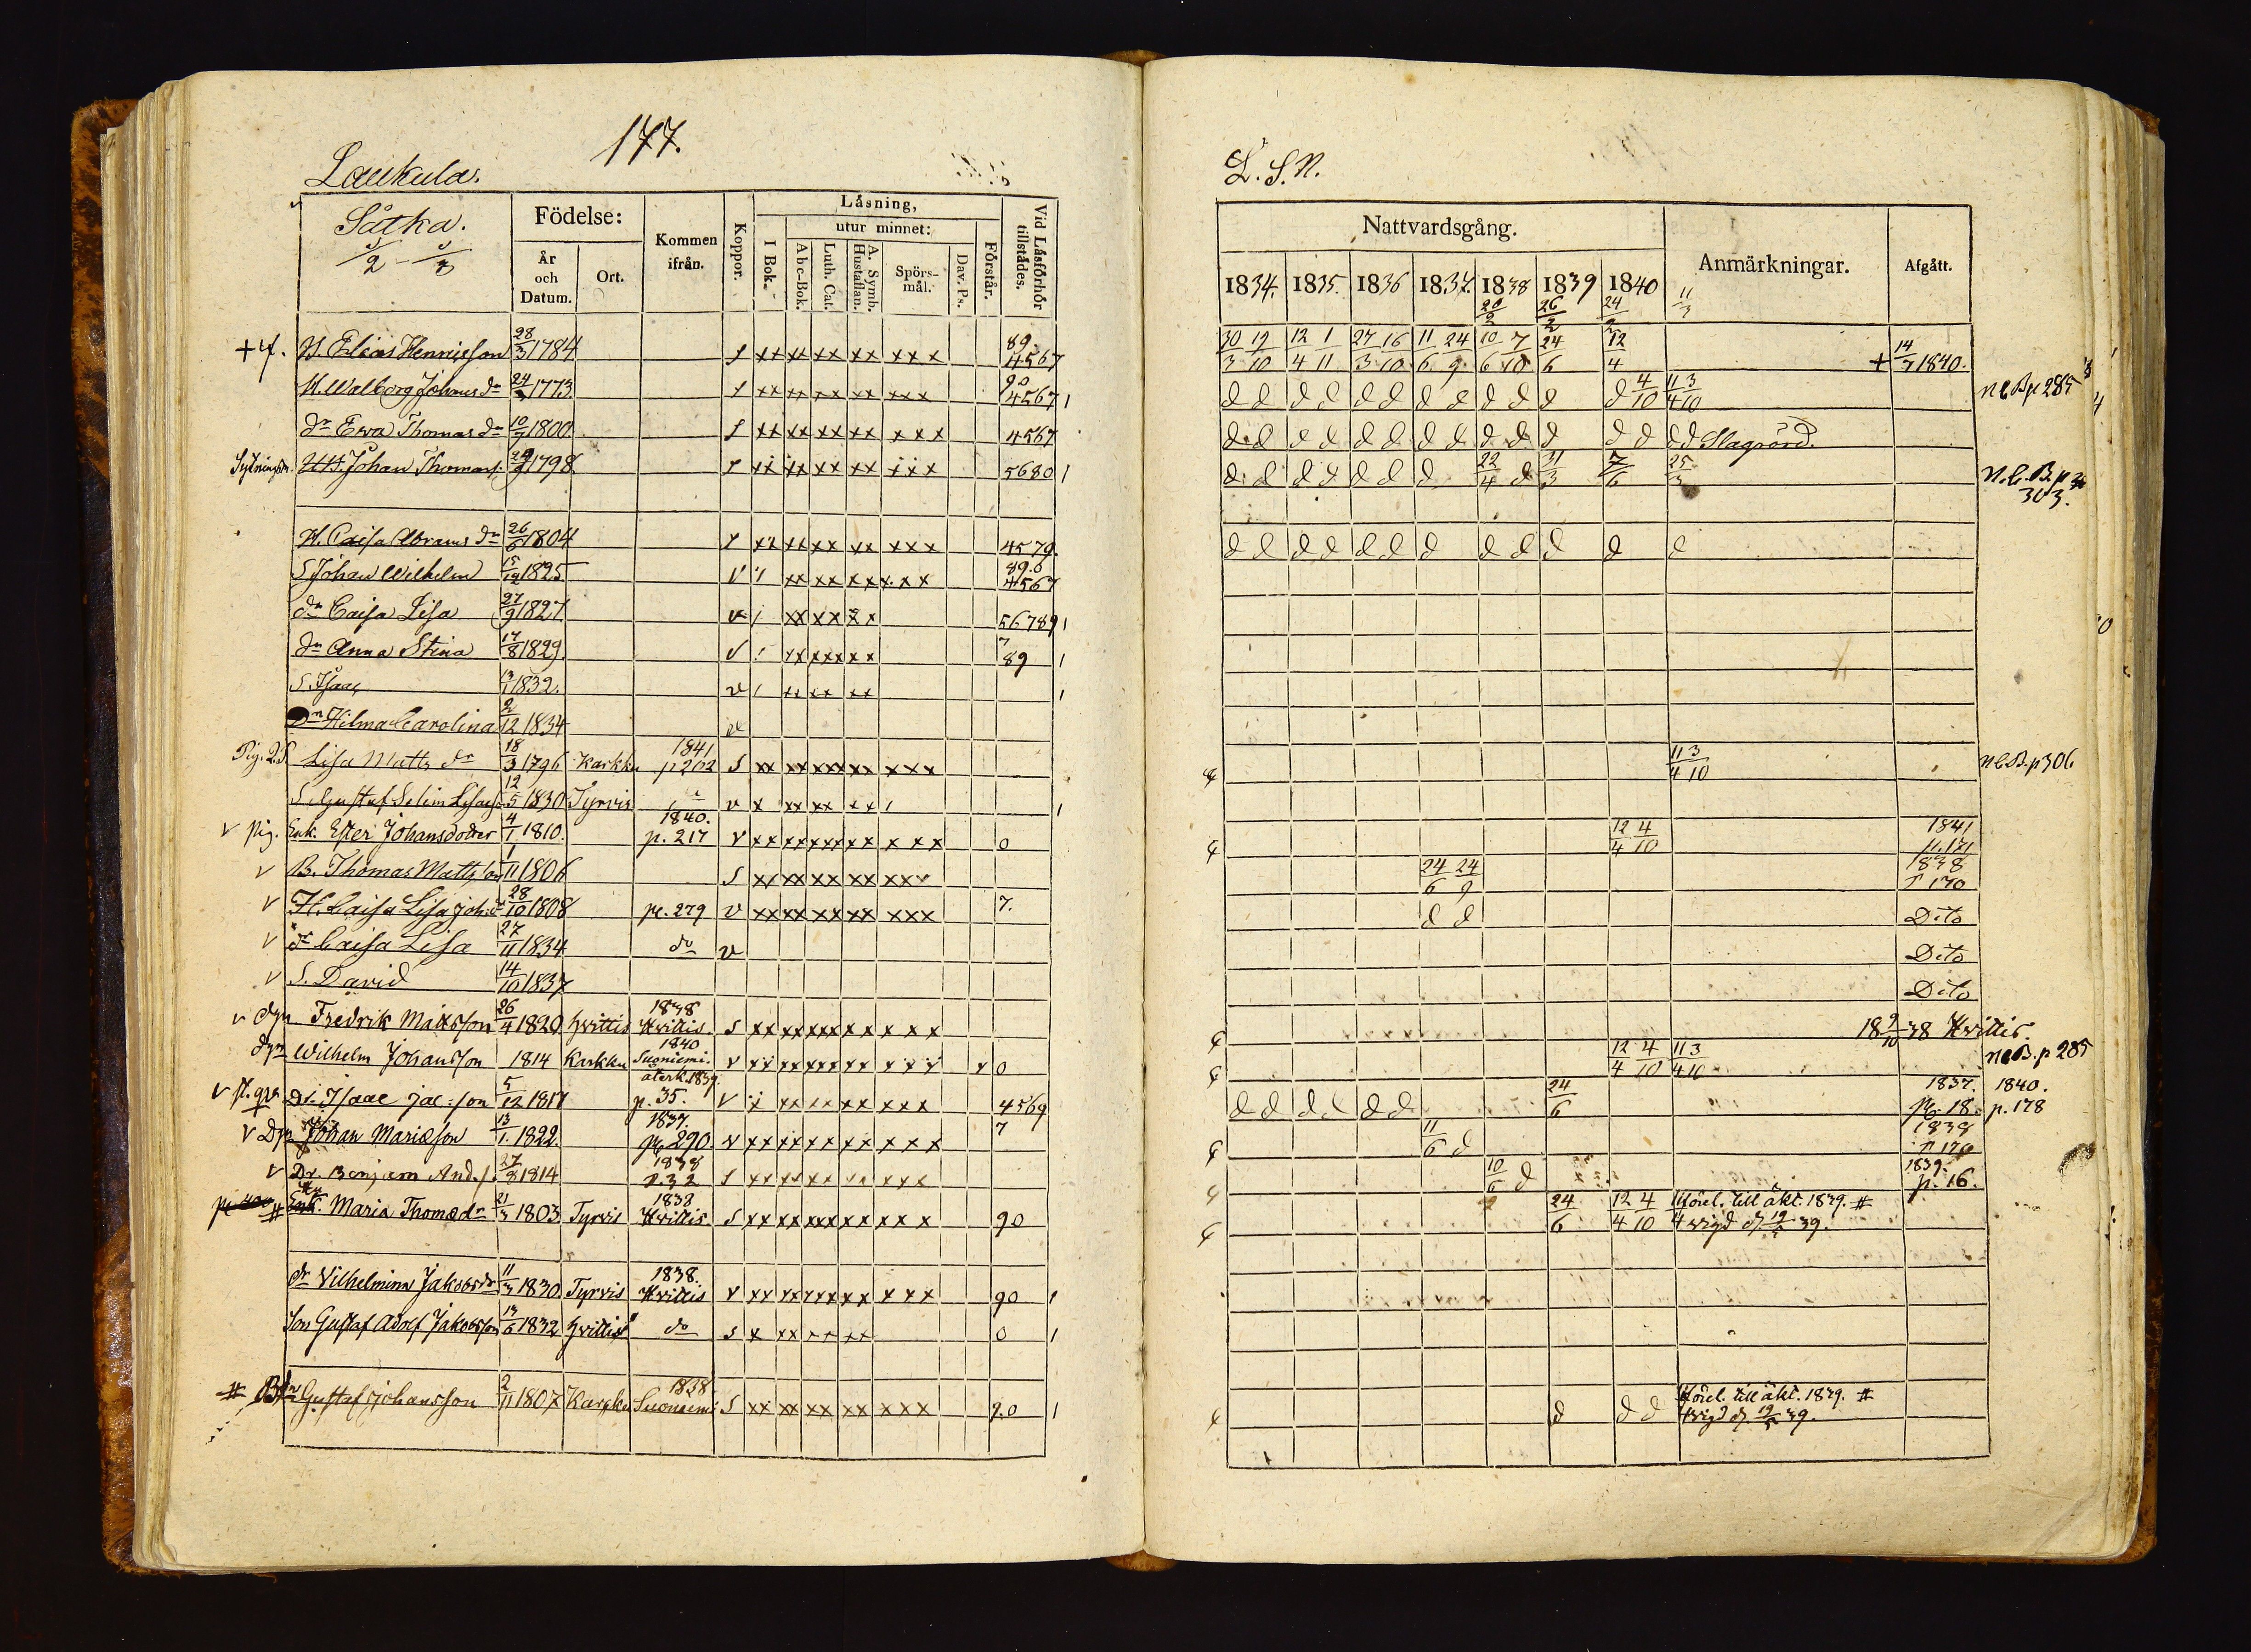 177.
Laukula.
Såtka.
Födelse:
År och Datum.
Ort.
Kommen ifrån.
Koppor.
Läsning,
I Bok.
utur minnet:
Abc-Bok.
Luth. Cat.
A. Symb. Hustaflan.
Spörsmål.
Dav. Ps.
Förstår.
Vid Läsförhör tillstädes.
H. Elias Henricsson 28/3 1784 89. 4567
H. Walborg Johans dr 1773 90 4567
dr Ewa Thomas dr 10/7 1800 4567
Johan Thomass. 1798 5680
H. Caisa Abrams dr 26/6 1804 4579.
S Johan Wilhelm 15/12 1825 89.0 4567
dr Caisa Lisa 27/9 1827 56789
dr Anna Stina 17/8 1829. 7 89
S. Isaac 1832.
dr Hilma Carolina 2/12 1834
Pig. Lisa Matts dr 18/3 1796 Karkku 1841 p 202
S. Gustaf Selim 12/5 1830 Tyrvis
Pig. Enk. Ester Johansdotter 4/1 1810. 1840. p. 217 0
B. Thomas Mattsson 1/11 1806
H. Caisa Lisa Joh: dr 28/10 1808 p. 279 7.
dr Caisa Lisa 27/11 1834 do
S. David 14/10 1837
Fredrik Mattsson 26/4 1820 Hvittis 1838 Hvittis
Wilhelm Johansson 1814 Karkku 1840 Suoniemi. 0
Dr. Isaac Jac:son 5/12 1817 återk. 1839. p. 35. 4569
Johan Mariæson 13/1 1822. 1837. p. 290 7
Dr. Benjam And.s. 1814 1838 p. 32
Enk. Maria Thomædr 21/3 1803 Tyrvis 1838 Hvittis 90
dr Vilhelmina Jakobsdr 11/3 1830 Tyrvis 1838. Hvittis 90
Son Gustaf Adolf Jakobsson 13/6 1832 Hvittis do 0
Gustaf Johansson 2/11 1807 Karkku 1838 Suoniemi 9.0
L. S. N.
Nattvardsgång.
Anmärkningar.
Afgått.
1834. 1835. 1836 1837. 1838 1839 1840
20/2 26/2 24/2 11/3
30/3 19/10 12/4 1/11 27/3 16/10 11/6 24/9 10/6 7/10 24/6 12/4 + 14/7 1840.
d d d d d d d d d d d d 4/10 11/4 3/10 N C B p 285
d d d d d d d d d d d d d d d Slagrörd.
d d d d d d d 22/4 d 31/3 7/6 25/3 N. C. B. p 303.
d d d d d d d d d d d d
11/4 3/10 N C B. p 306
12/4 4/10 1841 p. 171
24/6 24/9 1838 p 170
d d Dito
Dito
Dito
18 9/10 38 Hvittis.
12/4 4/10 11/4 3/10 N C B. p 285
d d d d d d 24/6 1837. p. 18. 1840. p. 178
11/6 d 1838 p 170
10/6 d 1839. p. 16.
24/6 12/4 4/10 förel. till äkt. 1839. #
wigd d. 39.
d d d förel. till äkt. 1839. #
wigd d. 39.